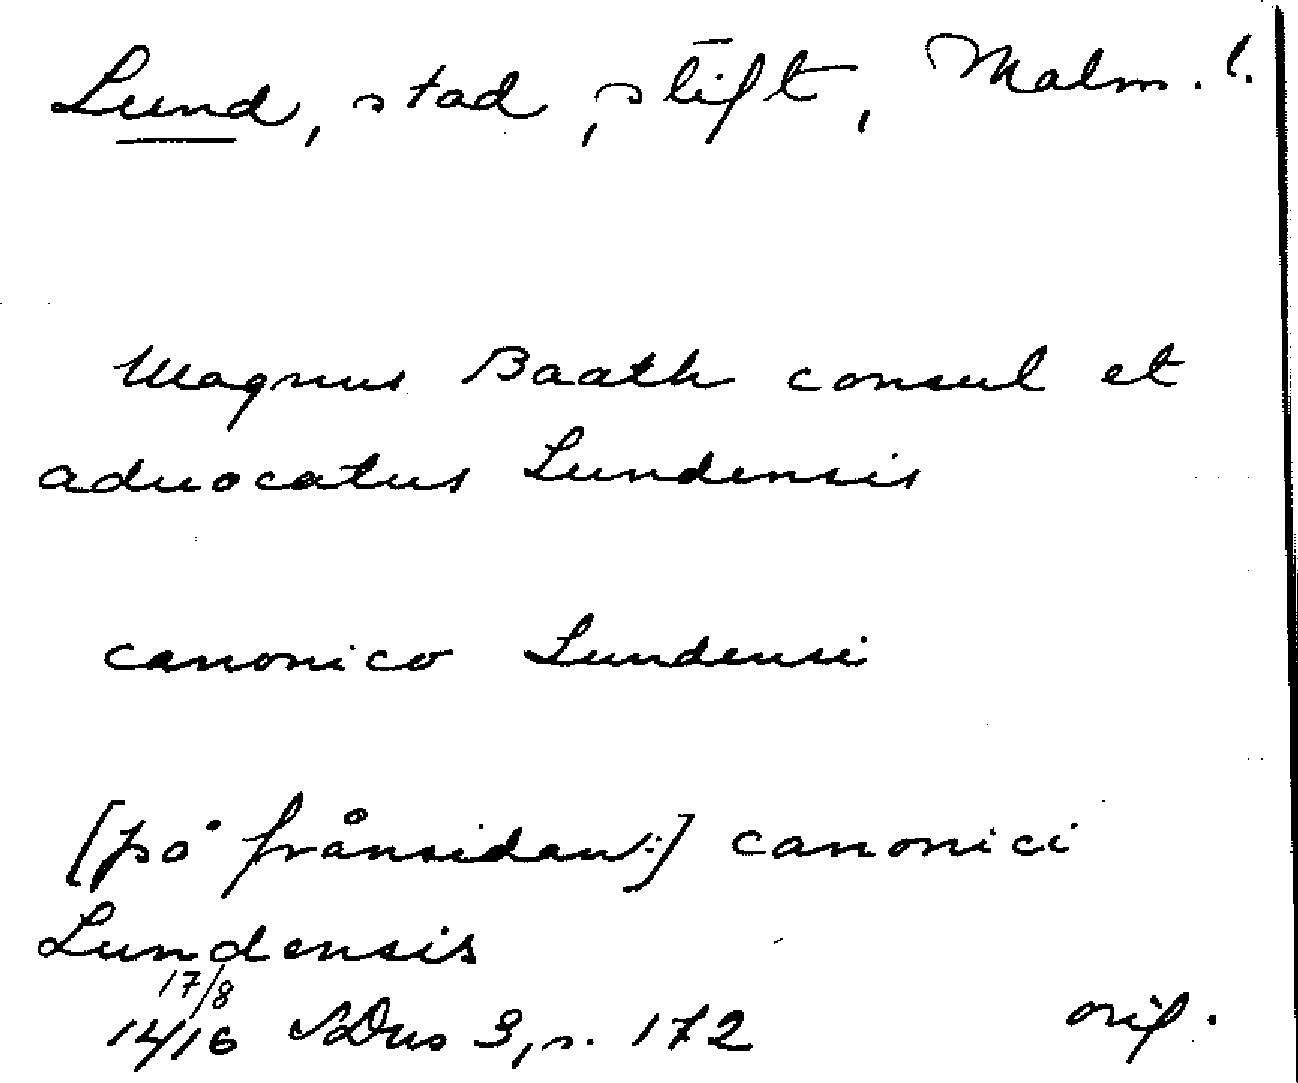 Lund, stad, stift, Malm. l.
Magnus Baath consul et
aduocatus Lundensis
canonico Lundensi
[på frånsidan:] canonici
Lundensis
17/8
1416 SDns 3, s. 172 orig.